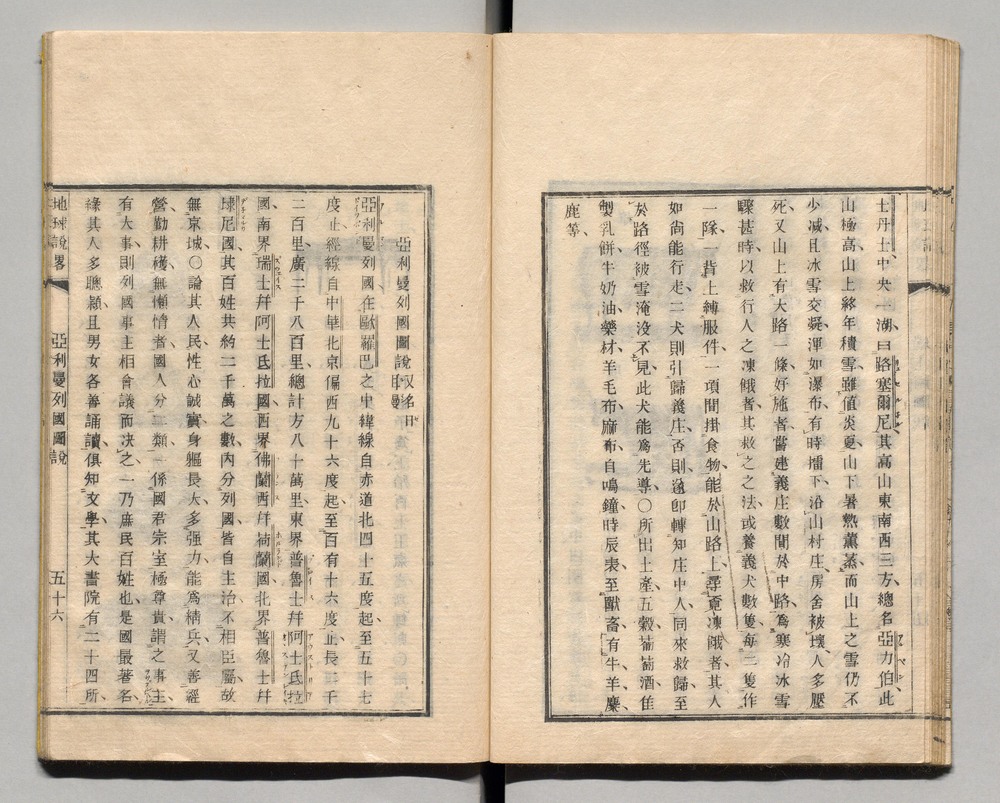 士丹士中央一湖曰路塞爾尼其高山東南西三方總名亞力伯此
山極高山上終年積雪雖值炎夏山下暑熱薰蒸而山上之雪仍不
少減且冰雪交凝渾如瀑布有時擂下沿山村庄房舍被壞人多壓
死又山上有大路一條好施者嘗建義庄數間於中路爲寒冷冰雪
驟甚時以救行人之凍餓者其救之之法或養義犬數隻每三隻作
一隊一背上縛服件一項間掛食物能於山路上尋覔凍餓者其人
如尚能行走二犬則引歸義庄否則遂卽轉知庄中人同來救歸至
於路徑被雪淹沒不見此犬能爲先導〇所出土產五穀葡萄酒隹
製乳餅牛奶油藥材羊毛布麻布自鳴鐘時辰表至獸畜有牛羊麋
鹿等
亞利曼列國圖說又名日耳曼
亞利曼列國在歐羅巴之中緯線自赤道北四十五度起至五十七
度止經線自中華北京偏西九十六度起至百有十六度止長二千
二百里廣二千八百里總計方八十萬里東界普魯士幷阿士氐拉
國南界瑞士幷阿士氐拉國西界佛蘭西幷荷蘭國北界普魯士幷
㻋尼國其百姓共約二千萬之數內分列國皆自主治不相臣屬故
無京城〇論其人民性心誠實身軀長大多强力能爲精兵又善經
營勤耕穫無懶惰者國人分三類一係國君宗室極尊貴謂之事主
有大事則列國事主相會議而决之一乃庶民百姓也是國最著名
緣其人多聰穎且男女各善誦讀俱知文學其大書院有二十四所
地球說畧
亞利曼列國圖說
五十六